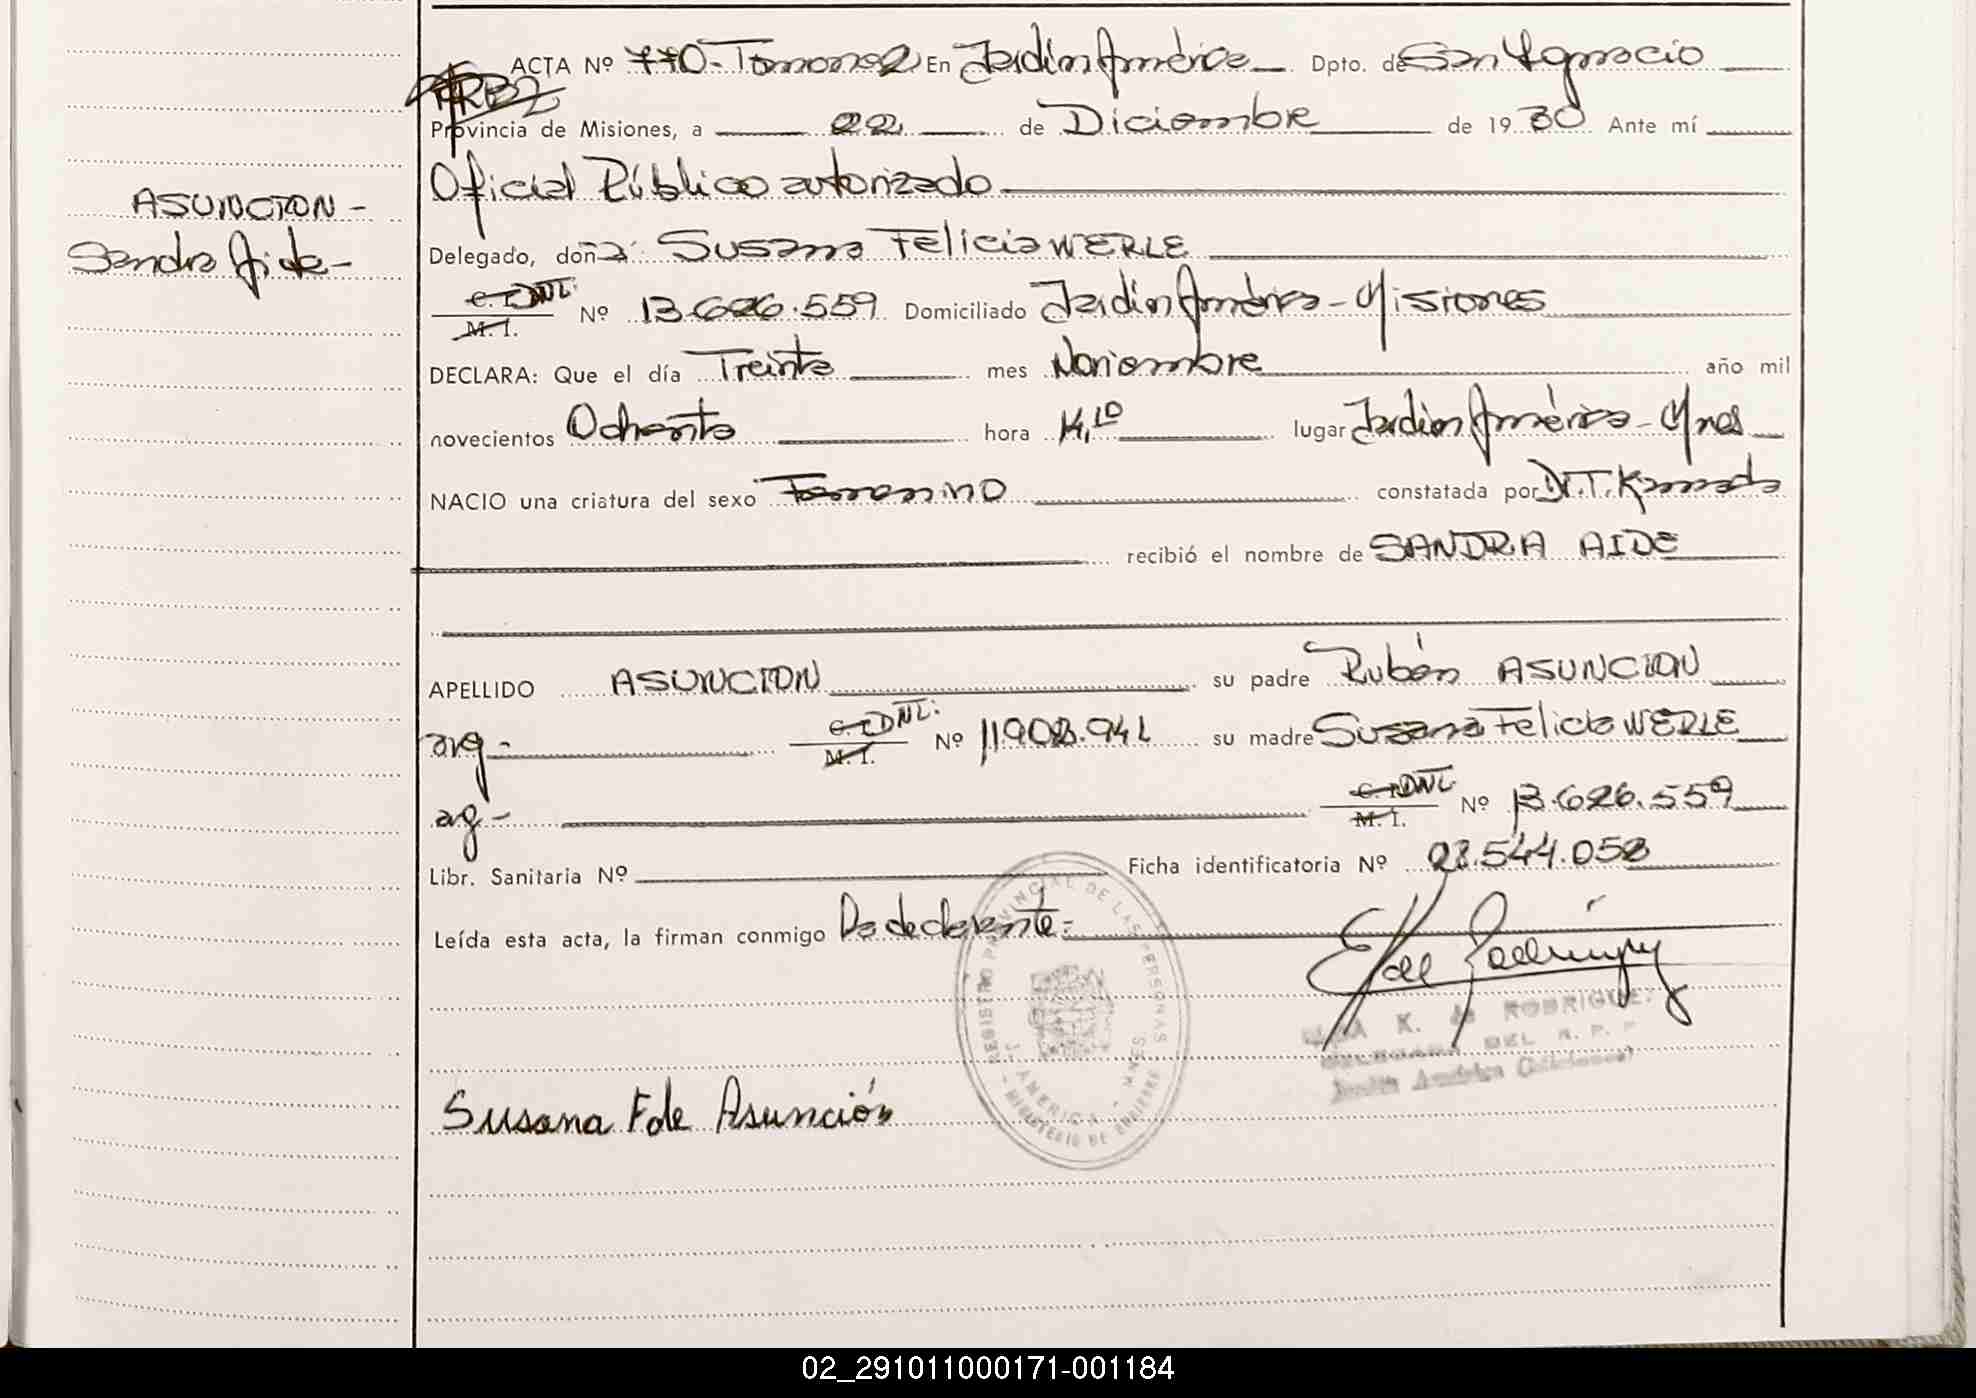 ACTA Nº 770-Tomo nº 2 En Jardín América Dpto. de San Ignacio
Provincia de Misiones, a 22 de Diciembre de 1980 Ante mí
Oficial Público autorizado
ASUNCION -
Sandra Aide -
Delegado, doña: Susana Felicia WERLE
C. I. DNI:
M. I. Nº 13.626.559 Domiciliado Jardín América - Misiones
DECLARA: Que el día Treinta mes Noviembre año mil
novecientos Ochenta hora 14,10 lugar Jardín América - Mnes
NACIO una criatura del sexo Femenino constatada por Dr. T.
recibió el nombre de SANDRA AIDE
APELLIDO ASUNCION su padre Rubén ASUNCION
arg - C. I. DNI: M. I. Nº su madre Susana Felicia WERLE
arg - C. I. DNI M. I. Nº 13.626.559
Libr. Sanitaria Nº Ficha identificatoria Nº 28.544.058
Leída esta acta, la firman conmigo La declarante =
REGISTRO PROVINCIAL DE LAS PERSONAS
J. AMERICA - MNES.
MINISTERIO DE GOBIERNO
K. de RODRIGUEZ
DEL R. P. P.
Jardín América (Misiones)
Susana F de Asunción
02_291011000171-001184